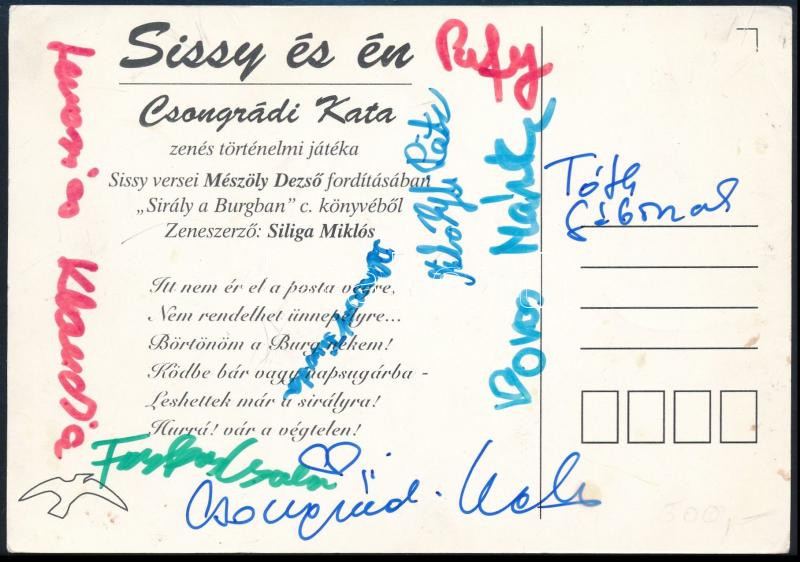 Sissy és én
Csongrádi Kata
zenés történelmi játéka
Sissy versei Mészöly Dezső fordításában
„Sirály a Burgban” c. könyvéből
Zeneszerző: Siliga Miklós
Itt nem ér el a posta végre,
Nem rendelhet ünnepélyre...
Börtönöm a Burg nekem!
Ködbe bár vagy napsugárba -
Leshettek már a sirályra!
Hurrá! vár a végtelen!
Tóth
Gábornak
Klaudia
Farkas Csaba
Csongrádi Kata
300,-